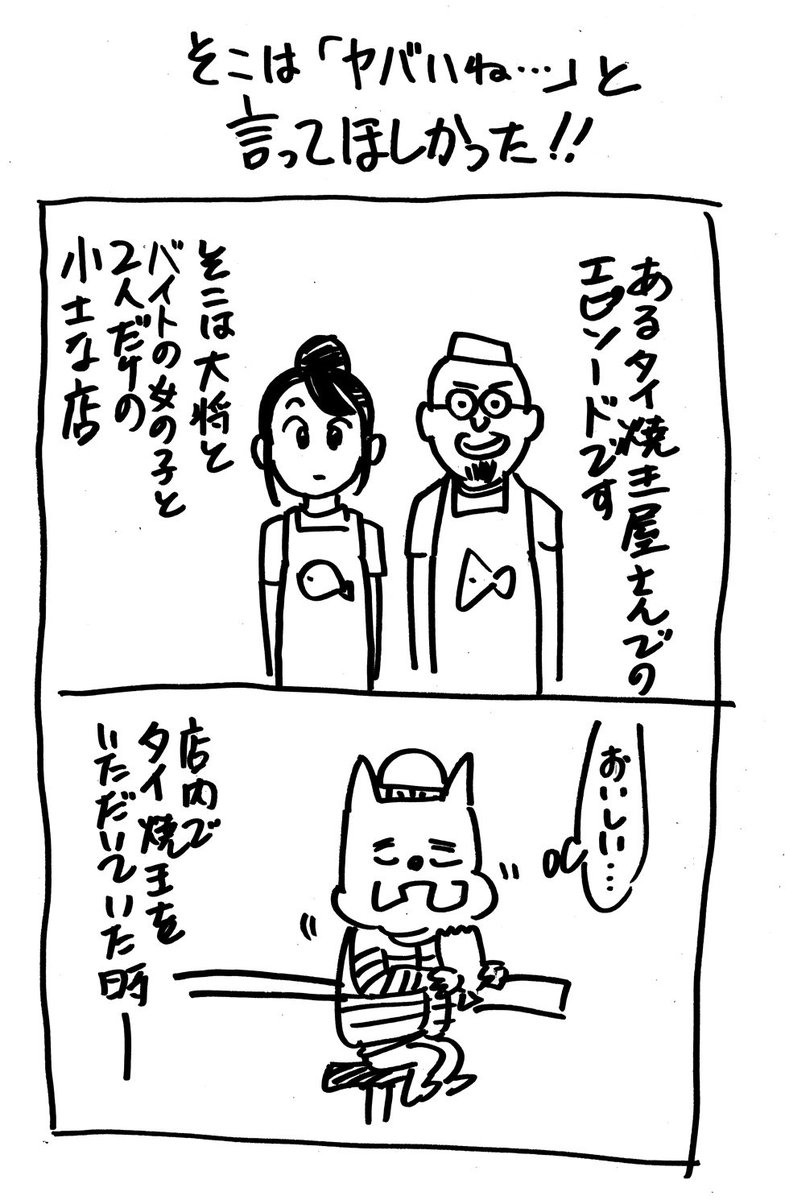 そこは「ヤバいね…」と
言ってほしかった!!
あるタイ焼き屋さんでの
エピソードです
そこは大将と
バイトの女の子と
2人だけの
小さな店
おいしい…
店内で
タイ焼きを
いただいていた時ー